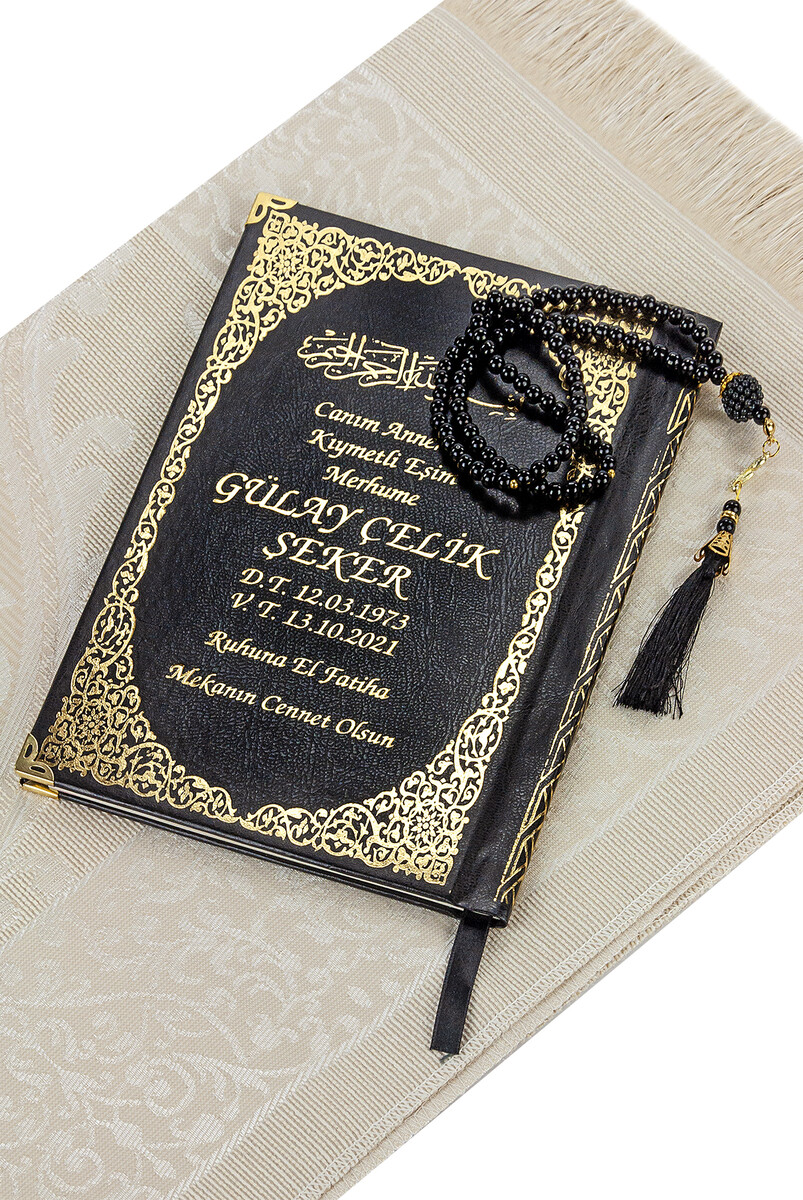 Canım Annem
Kıymetli Eşim
Merhume
GÜLAY ÇELİK
ŞEKER
D.T. 12.03.1973
V.T. 13.10.2021
Ruhuna El Fatiha
Mekanın Cennet Olsun